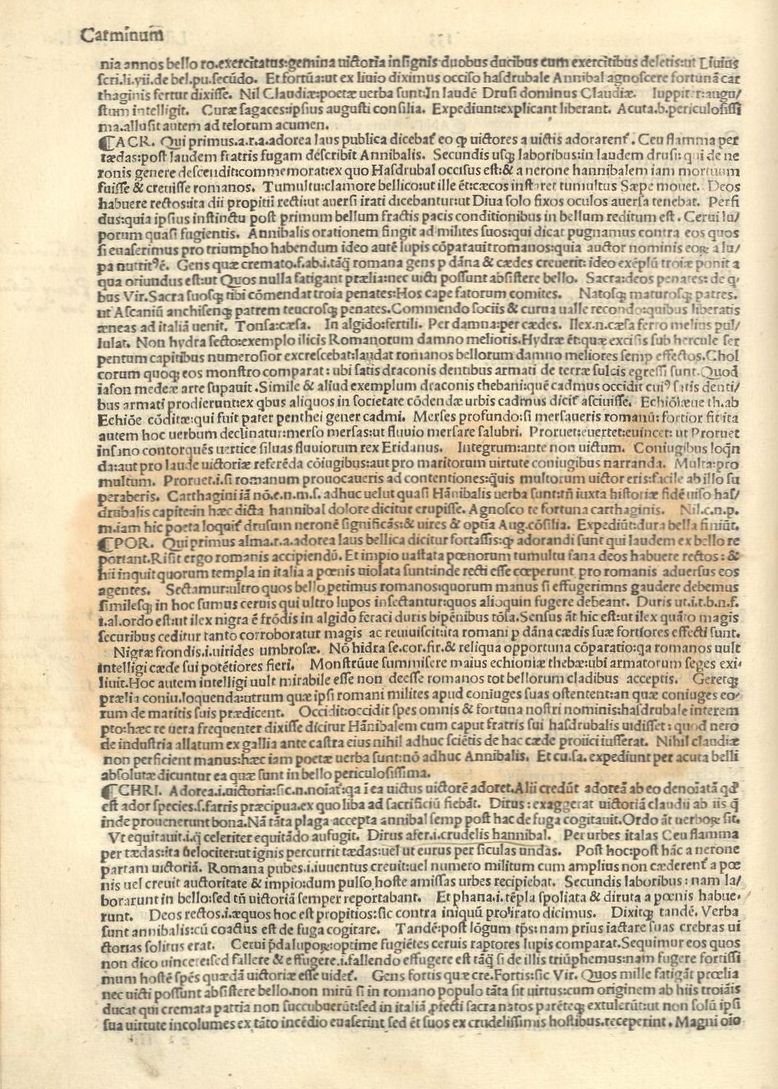 Carminum
nia annos bello ro.exercitatus:gemina uictoria insignis duobus ducibus cum exercitibus deletis:ut Liuius
scri.li.vii.de bel.pu.secūdo. Et fortūa:ut ex liuio diximus occiso hasdrubale Annibal agnoscere fortunā car
thaginis fertur dixisse. Nil Claudiæ:poetæ uerba sunt:In laudē Drusi dominus Claudiæ. Iuppiter:augu/
stum intelligit. Curæ sagaces:ipsius augusti consilia. Expediunt:explicant liberant. Acuta.b.periculosissi
ma.allusit autem ad telorum acumen.
¶ACR. Qui primus.a.r.a.adorea laus publica dicebat̄ eo ꝙ uictores a uictis adorarent̄. Ceu flamma per
tædas:post laudem fratris fugam describit Annibalis. Secundis usꝗ laboribus:in laudem drusi:qui de ne
ronis genere descendit:commemorat:ex quo Hasdrubal occisus est:& a nerone hannibalem iam mortuum
fuisse & creuisse romanos. Tumultu:clamore bellico:ut ille ēt:cæcos instaret tumultus Sæpe mouet. Deos
habuere rectos:ita dii propitii recti:ut auersi irati dicebantur:ut Diua solo fixos oculos auersa tenebat. Perfi
dus:quia ipsius instinctu post primum bellum fractis pacis conditionibus in bellum reditum est. Cerui lu/
porum quasi fugientis. Annibalis orationem fingit ad milites suos:qui dicat pugnamus contra eos quos
si euaserimus pro triumpho habendum ideo autē lupis cōparauit romanos:quia auctor nominis eoꝝ a lu/
pa nutritꝰ ē. Gens quæ cremato.f.ab.i.tāꝗ romana gens p dāna & cædes creuerit: ideo exēplū troiæ ponit a
qua oriundus est:ut Quos nulla fatigant prælia:nec uicti possunt absistere bello. Sacra:deos penates: de q̇/
bus Vir.Sacra suosꝗ tibi cōmendat troia penates:Hos cape fatorum comites. Natosꝗ maturosꝗ patres.
ut Ascaniū anchisenꝗ patrem teucrosꝗ penates.Commendo sociis & curua ualle recondo:quibus liberatis
æneas ad italiā uenit. Tonsa:cæsa. In algido:fertili. Per damna:per cædes. Ilex.n.cæsa ferro melius pul/
lulat. Non hydra secto:exemplo ilicis Romanorum damno melioris.Hydræ ēt:quæ excisis sub hercule ser
pentum capitibus numerosior excrescebat:laudat romanos bellorum damno meliores semp effectos.Chol
corum quoꝗ eos monstro comparat: ubi satis draconis dentibus armati de terræ sulcis egressi sunt.Quod
iason medeæ arte supauit.Simile & aliud exemplum draconis thebani:quē cadmus occidit cuiꝰ satis denti/
bus armati prodierunt:ex qbus aliquos in societate cōdendæ urbis cadmus dicit̄ asciuisse. Echiōiæue th.ab
Echiōe cōditæ:qui fuit pater penthei gener cadmi. Merses profundo:si mersaueris romanū:fortior fit:ita
autem hoc uerbum declinatur:merso mersas:ut fluuio mersare salubri. Proruet:euertet:euincet: ut Proruet
insano contorquēs uertice siluas fluuiorum rex Eridanus. Integrum:ante non uictum. Coniugibus loqn̄
da:aut pro laude uictoriæ referēda cōiugibus:aut pro maritorum uirtute coniugibus narranda. Multa:pro
multum. Proruet.i.si romanum prouocaueris ad contentiones:quis multorum uictor eris:facile ab illo su
peraberis. Carthagini iā nō.e.n.m.s. adhuc uelut quasi Hānibalis uerba sunt:tn̄ iuxta historiæ fidē uiso has/
drubalis capite:in hæc dicta hannibal dolore dicitur erupisse. Agnosco te fortuna carthaginis. Nil.c.n.p.
m.iam hic poeta loquit̄ drusum neronē significās:& uires & optia Aug.cōsilia. Expediūt:dura bella finiūt.
¶POR. Qui primus alma.r.a.adorea laus bellica dicitur fortassis:ꝙ adorandi sunt qui laudem ex bello re
portant.Risit ergo romanis accipiendū. Et impio uastata pœnorum tumultu fana deos habuere rectos: &
hii inquit quorum templa in italia a pœnis uiolata sunt:inde recti esse cœperunt pro romanis aduersus eos
agentes. Sectamur:ultro quos bello petimus romanos:quorum manus si effugerimns gaudere debemus
similesꝗ in hoc sumus ceruis qui ultro lupos insectantur:quos alioquin fugere debeant. Duris ut.i.t.b.n.f.
i.al.ordo est:ut ilex nigra ē frōdis in algido feraci duris bipēnibus tōsa.Sensus āt hic est:ut ilex quāto magis
securibus ceditur tanto corroboratur magis ac reuiuiscit:ita romani p dāna cædis suæ fortiores effecti sunt.
Nigræ frondis.i.uirides umbrosæ. Nō hidra se.cor.fir.& reliqua opportuna cōparatio:qa romanos uult
intelligi cæde sui potētiores fieri. Monstrūue summisere maius echioniæ thebæ:ubi armatorum seges exi/
liuit.Hoc autem intelligi uult mirabile esse non deesse romanos tot bellorum cladibus acceptis. Geretꝗ
prælia coniu.loquenda:utrum quæ ipsi romani milites apud coniuges suas ostentent:an quæ coniuges eo/
rum de maritis suis prædicent. Occidit:occidit spes omnis & fortuna nostri nominis:hasdrubale interem
pto:hæc re uera frequenter dixisse dicitur Hānibalem cum caput fratris sui hasdrubalis uidisset: quod nero
de industria allatum ex gallia ante castra eius nihil adhuc sciētis de hac cæde proiici iusserat. Nihil claudiæ
non perficient manus:hæc iam poetæ uerba sunt:nō adhuc Annibalis. Et cu.sa.expediunt per acuta belli
absolutæ dicuntur ea quæ sunt in bello periculosissima.
¶CHRI. Adorea.i.uictoria:sic.n.noīat̄:qa i ea uictus uictorē adoret.Alii credūt adoreā ab eo denoīatā qd̄
est ador species.s.farris præcipua.ex quo liba ad sacrificiū fiebāt. Dirus: exaggerat uictoriā claudii ab iis q̇
inde prouenerunt bona.Nā tāta plaga accepta annibal semp post hæc de fuga cogitauit.Ordo āt uerboꝝ sit.
Vt equitauit.i.q celeriter equitādo aufugit. Dirus afer.i.crudelis hannibal. Per urbes italas Ceu flamma
per tædas:ita uelociter:ut ignis percurrit tædas:uel ut eurus per siculas undas. Post hoc:post hāc a nerone
partam uictoriā. Romana pubes.i.iuuentus creuit:uel numero militum cum amplius non cæderent̄ a pœ
nis uel creuit auctoritate & impio:dum pulso hoste amissas urbes recipiebat. Secundis laboribus: nam la/
borarunt in bello:sed tn̄ uictoriā semper reportabant. Et phana.i.tēpla spoliata & diruta a pœnis habue/
runt. Deos rectos.i.æquos hoc est propitios:sic contra iniquū pro irato dicimus. Dixitꝗ tandē. Verba
sunt annibalis:cū coactus est de fuga cogitare. Tandē:post lōgum tps:nam prius iactare suas crebras ui
ctorias solitus erat. Cerui pda lupoꝝ:optime fugiētes ceruis raptores lupis comparat.Sequimur eos quos
non dico uincere:sed fallere & effugere.i.fallendo effugere est tāꝗ si de illis triūphemus:nam fugere fortissi
mum hostē spes quædā uictoriæ esse uidet̄. Gens fortis quæ cre.Fortis:sic Vir. Quos mille fatigāt prœlia
nec uicti possunt absistere bello.non mirū si in romano populo tāta sit uirtus:cum originem ab hiis troiāis
ducat qui cremata patria non succubuerūt:sed in italiā piecti sacra natos parētꝗ extulerūt:ut non solū ipsi
sua uirtute incolumes ex tāto incēdio euaserint sed ēt suos ex crudelissimis hostibus.receperint. Magni oīo